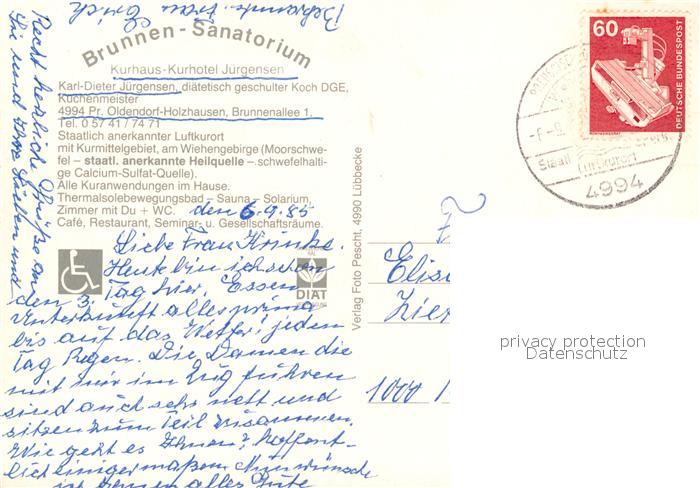 Brunnen - Sanatorium
Kurhaus-Kurhotel Jürgensen
Karl-Dieter Jürgensen, diätetisch geschulter Koch DGE,
Küchenmeister
4990 Pr. Oldendorf-Holzhausen, Brunnenallee 1,
Tel. 0 57 41 / 74 71
Staatlich anerkannter Luftkurort
mit Kurmittelgebiet, am Wiehengebirge (Moorschwe-
fel – staatl. anerkannte Heilquelle – schwefelhalti-
ge Calcium-Sulfat-Quelle).
Alle Kuranwendungen im Hause.
Thermalsolebewegungsbad – Sauna – Solarium,
Zimmer mit Du + WC.
Café, Restaurant, Seminar- u. Gesellschaftsräume.
den 6.9.85
Liebe Frau
Heute bin ich schon
den 3. Tag hier, Essen
Unterkunft alles prima
bis auf das Wetter, jeden
Tag Regen. Die Damen die
mit mir im Zug fuhren
sind auch sehr nett und
sitzen zum Teil zusammen.
Wie geht es Ihnen? hoffent-
lich einigermaßen. Nun wünsche
ich Ihnen alles Gute
Recht herzliche Grüße an
Sie und Ihre Lieben und
Erich
DIÄT
Verlag Foto Pescht, 4990 Lübbecke
60
DEUTSCHE BUNDESPOST
Staatl. Luftkurort
4994
1000
privacy protection
Datenschutz